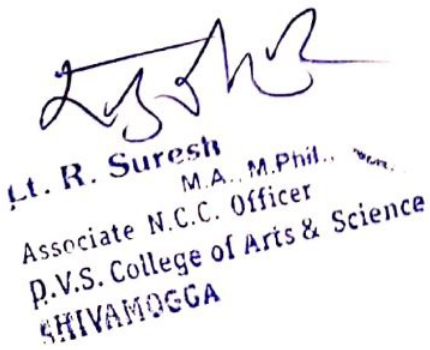 Lt. R. Suresh
M.A., M.Phil.,
Associate N.C.C. Officer
D.V.S. College of Arts & Science
SHIVAMOGGA